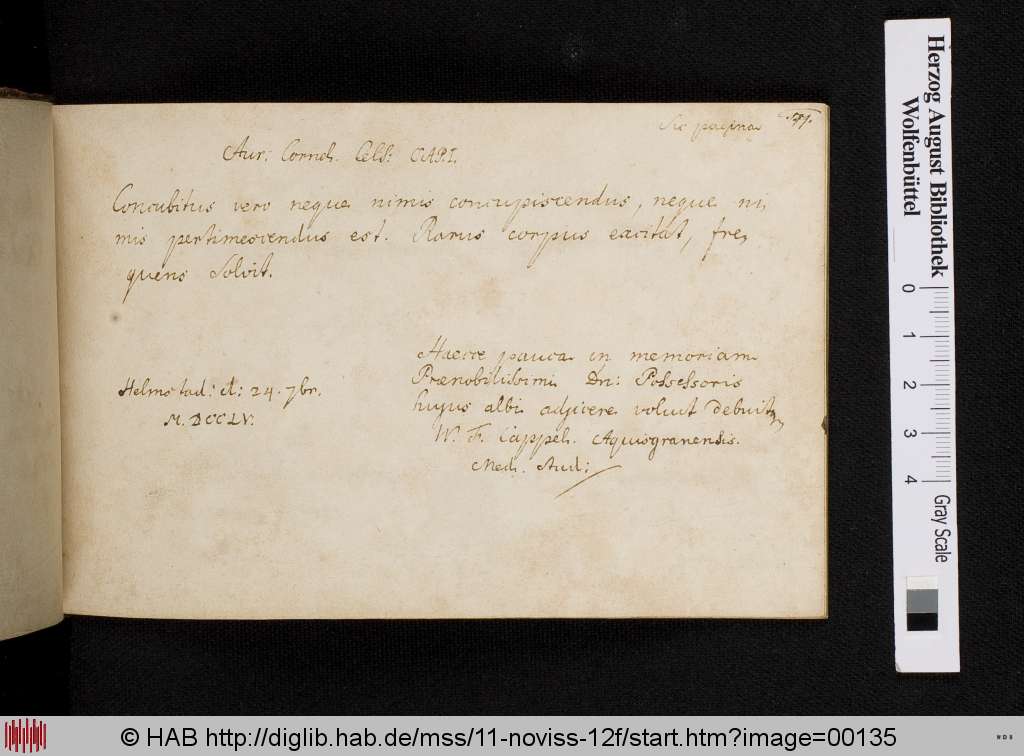 Sic pagina 71.
Aur: Cornel. Cels: CAP. I.
Concubitus vero neque nimis concupiscendus, neque ni,
mis pertimescendus est. Rarus corpus excitat, fre,
quens Solvit.
Haecce pauca in memoriam
Prænobilissimi Dn: Possessoris
hujus albi adjicere voluit debuit
W. F. Cappel. Aquisgranensis.
Med. Stud:
Helmstad: d: 24. 7br.
M.DCCLV.
Herzog August Bibliothek
Wolfenbüttel
0 1 2 3 4
Gray Scale
© HAB http://diglib.hab.de/mss/11-noviss-12f/start.htm?image=00135